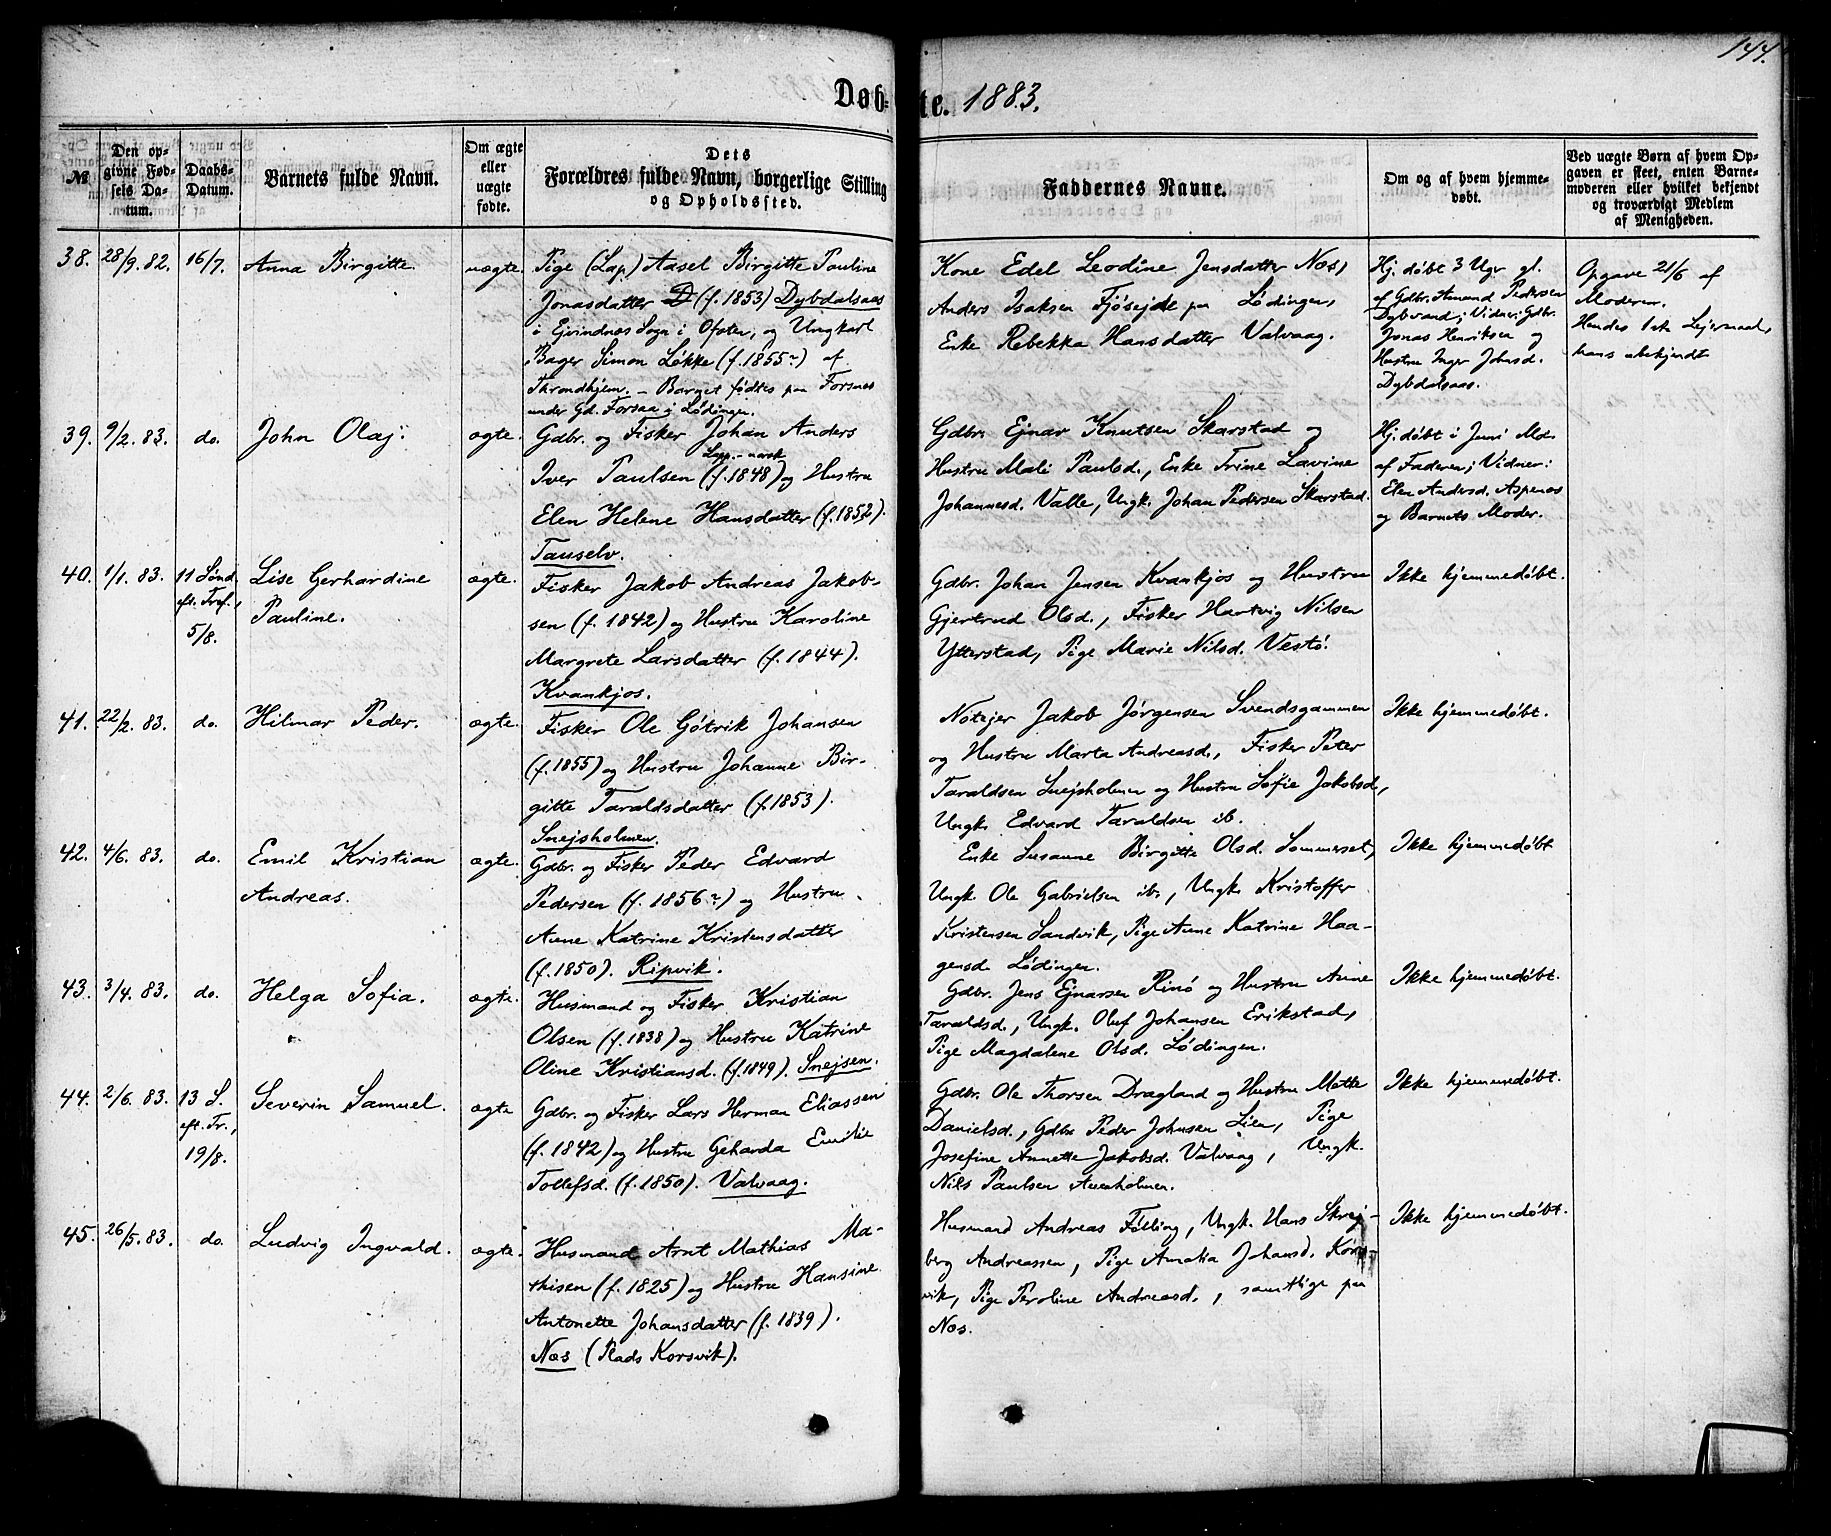 144.
Døb-te. 1883.
№
Den opgivne Fødsels Datum.
Daabs-Datum.
Barnets fulde Navn.
Om ægte eller uægte fødte.
Dets Forældres fulde Navn, borgerlige Stilling og Opholdssted.
Faddernes Navne.
Om og af hvem hjemmedøbt.
Ved uægte Børn af hvem Opgaven er skeet, enten Barnemoderen eller hvilket bekjendt og troværdigt Medlem af Menigheden.
38. 28/9. 82. 16/7. Anna Birgitte. uægte.
Pige (Lap) Aasel Birgitte Pauline
Jonasdatter D (f. 1853) Dybdalsaas
i Ejvindnæs Sogn i Ofoten, og Ungkarl
Bager Simon Løkke (f. 1855?) af
Throndhjem. – Barnet fødtes paa Forsnes
under Gd. Forsaa i Lødingen.
Kone Edel Leodine Jensdatter Næs,
Anders Isaksen Fjøsejde paa Lødingen,
Enke Rebekka Hansdatter Valvaag.
Hj. døbt 3 Ugr gl.
af Gdbr. Amund Pedersen
Dybvand; Vidner: Gdbr.
Jonas Henriksen og
Hustru Inger Johnsd.
Dybdalsaas.
Opgave 21/6 af
Moderen.
Hendes 1ste Lejermaal,
hans ubekjendt
39. 9/2. 83. do. John Olaj. ægte.
Gdbr. og Fisker Johan Anders
Lapp.-norsk
Iver Paulsen (f. 1848) og Hustru
Elen Helene Hansdatter (f. 1852).
Tauselv.
Gdbr. Ejnar Knutsen Skarstad og
Hustru Mali Paulsd., Enke Trine Lavine
Johannesd. Valle, Ungk. Johan Pedersen Skarstad.
Hj. døbt i Juni Md.
af Faderen; Vidner:
Elen Andersd. Aspenes
og Barnets Moder.
40. 1/1. 83. 11 Sønd. eft. Tref., 5/8. Lise Gerhardine
Pauline. ægte.
Fisker Jakob Andreas Jakob-
sen (f. 1842) og Hustru Karoline
Margrete Larsdatter (f. 1844).
Kvankjos.
Gdbr. Johan Jensen Kvankjos og Hustru
Gjertrud Olsd., Fisker Hartvig Nilsen
Ytterstad, Pige Marie Nilsd. Vestø.
Ikke hjemmedøbt.
41. 22/2. 83. do. Hilmar Peder. ægte.
Fisker Ole Gøtrik Johansen
(f. 1855) og Hustru Johanne Bir-
gitte Taraldsdatter (f. 1853).
Snejsholmen.
Notejer Jakob Jørgensen Svendsgammen
og Hustru Marta Andreasd., Fisker Peter
Taraldsen Snejsholmen og Hustru Sofie Jakobsd.,
Ungk. Edvard Taraldsen ib.
Ikke hjemmedøbt.
42. 4/6. 83. do. Emil Kristian
Andreas. ægte.
Gdbr. og Fisker Peder Edvard
Pedersen (f. 1856?) og Hustru
Anne Katrine Kristensdatter
(f. 1850). Ripvik.
Enke Susanne Birgitte Olsd. Sommerset,
Ungk. Ole Gabrielsen ib., Ungk. Kristoffer
Kristensen Sandvik, Pige Anne Katrine Haa-
gensd. Lødingen.
Ikke hjemmedøbt
43. 3/4. 83. do. Helga Sofia. ægte.
Husmand og Fisker Kristian
Olsen (f. 1838) og Hustru Katrine
Oline Kristiansd. (f. 1849). Snejsen.
Gdbr. Jens Ejnarsen Rinø og Hustru Anne
Taraldsd., Ungk. Oluf Johansen Erikstad,
Pige Magdalene Olsd. Lødingen.
Ikke hjemmedøbt.
44. 2/6. 83. 13 S. eft. Tr., 19/8. Severin Samuel. ægte
Gdbr. og Fisker Lars Herman Eliassen
(f. 1842) og Hustru Geharda Emilie
Tollefsd. (f. 1850). Valvaag.
Gdbr. Ole Thorsen Dragland og Hustru Mette
Danielsd., Gdbr. Peder Johnsen Lien, Pige
Josefine Annette Jakobsd. Valvaag, Ungk.
Nils Paulsen Annholmen.
Ikke hjemmedøbt.
45. 26/5. 83. do. Ludvig Ingvald. ægte.
Husmand Arnt Mathias Ma-
thisen (f. 1825) og Hustru Hansine
Antonette Johansdatter (f. 1839).
Næs (Plads Korsvik).
Husmand Andreas Følling, Ungk. Hans Skrej-
berg Andreassen, Pige Amalia Johansd. Kors-
vik, Pige Peroline Andreasd., samtlige paa
Næs.
Ikke hjemmedøbt.